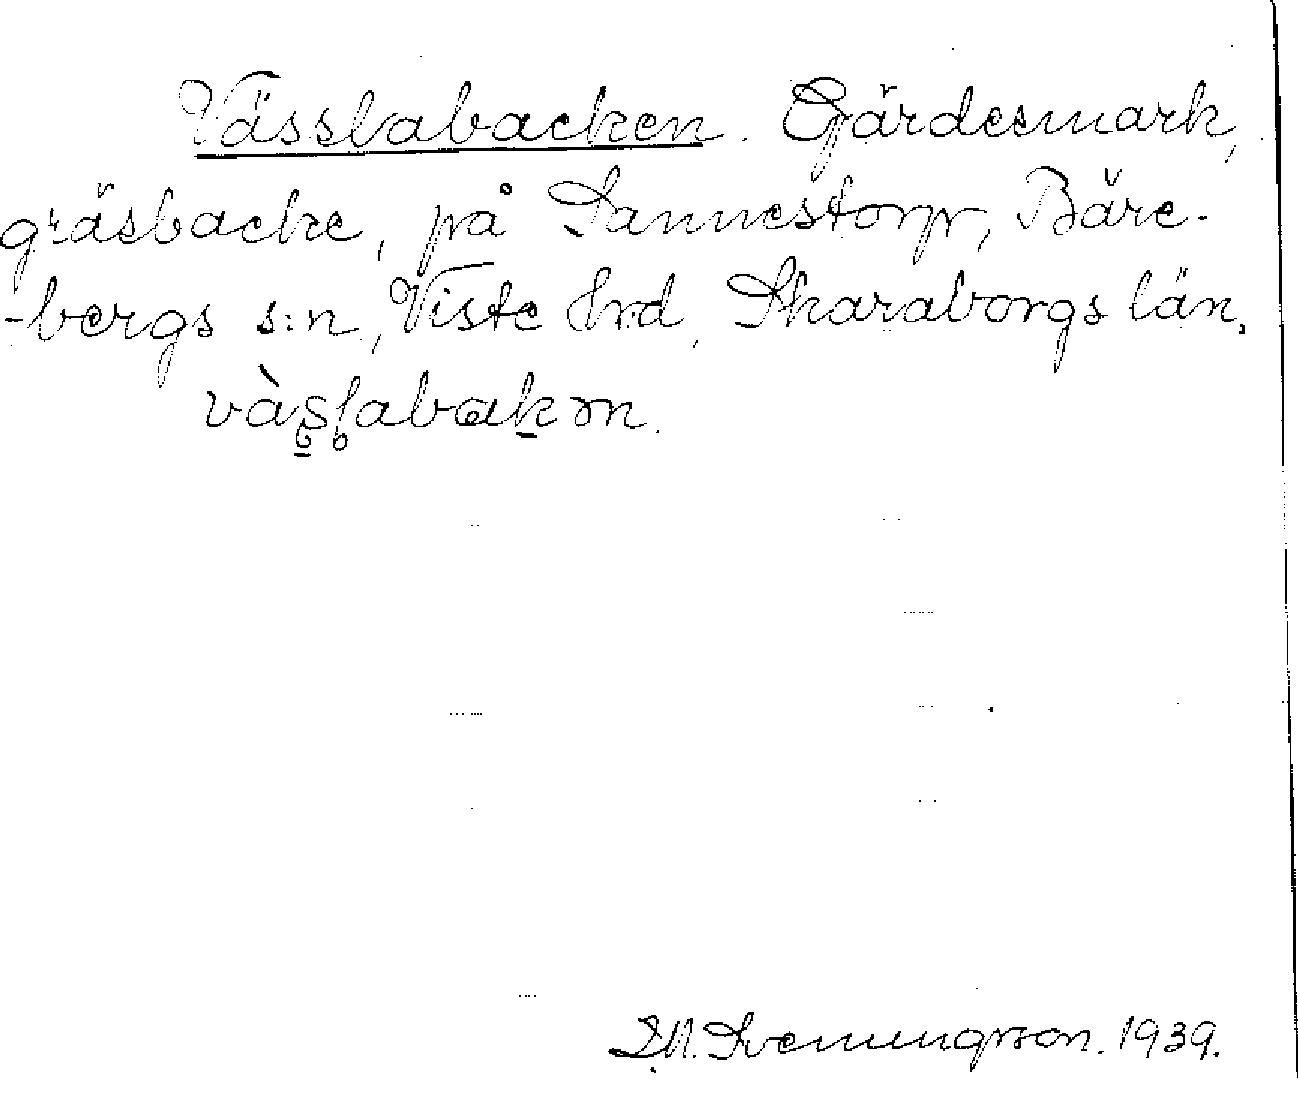 Vässlabacken. Gärdesmark,
gräsbacke, på Sannestorp, Bäre-
-bergs s:n, Viste hrd, Skaraborgs län.
vàslabakən.
D.N. Svenungsson. 1939.